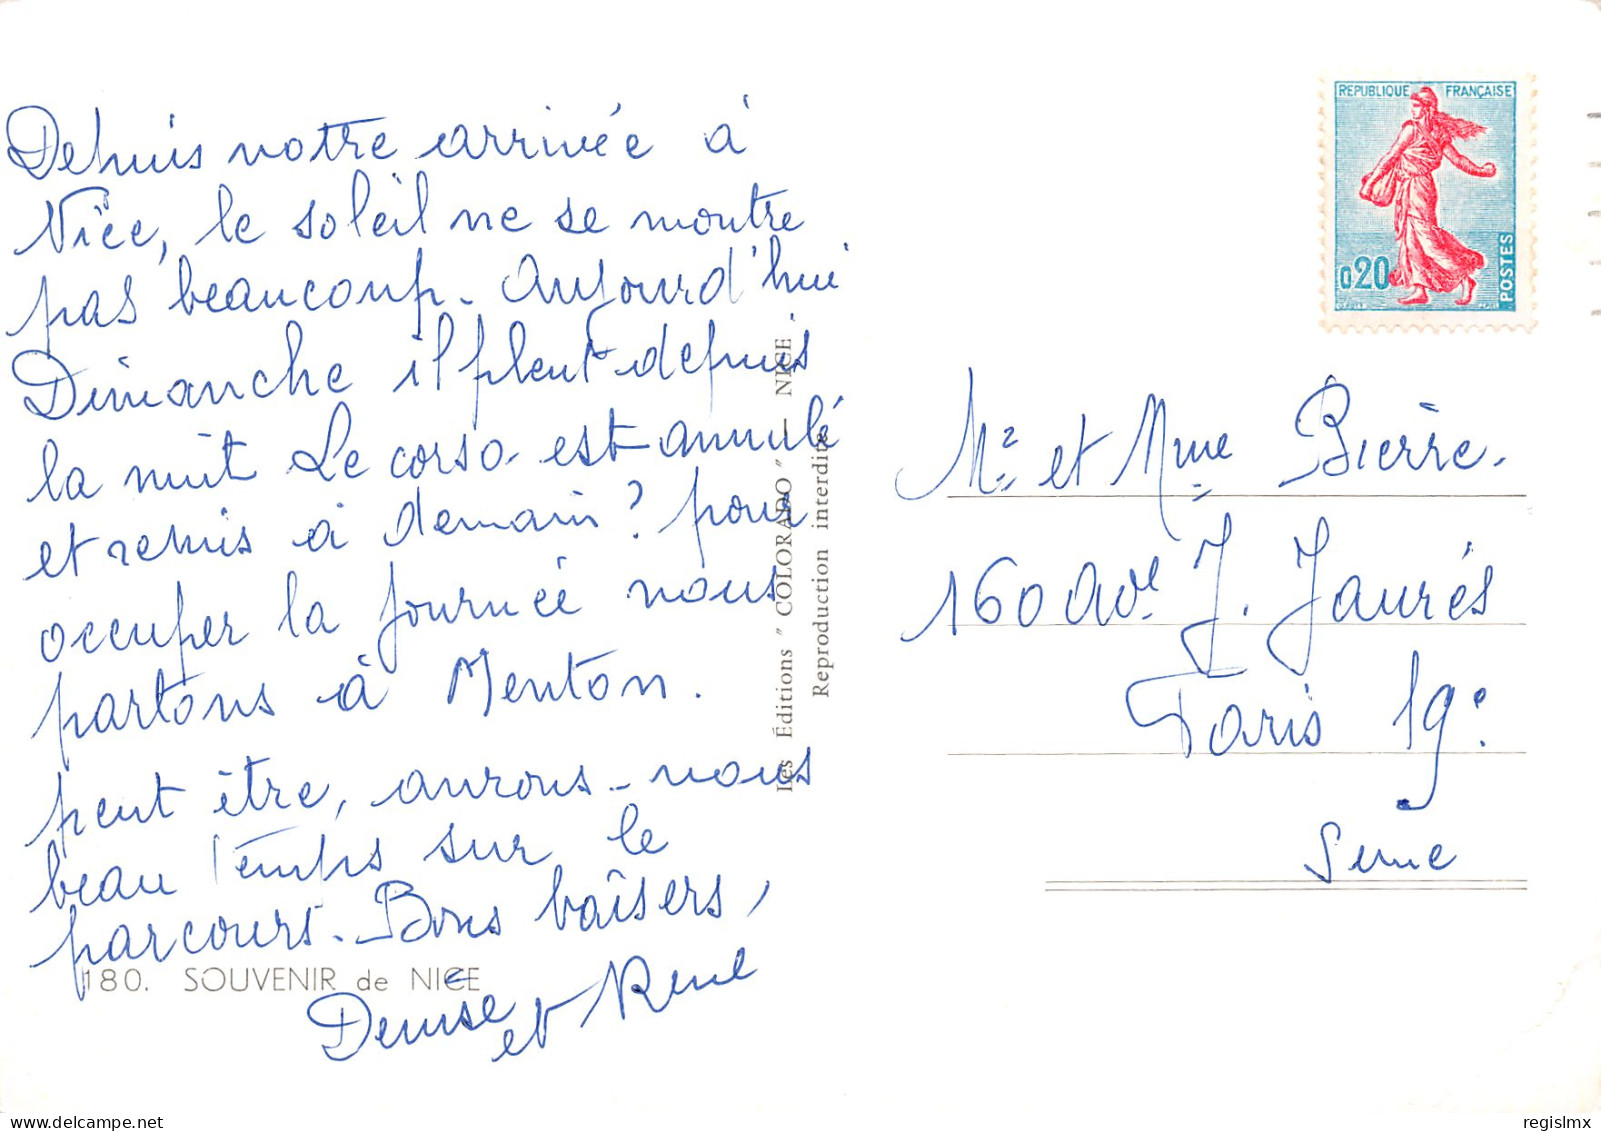 Depuis notre arrivée à
Nice, le soleil ne se montre
pas beaucoup. Aujourd'hui
Dimanche il pleut depuis
la nuit Le corso est annulé
et remis à demain ? pour
occuper la journée nous
partons à Menton.
peut être, aurons-nous
beau temps sur le
parcours. Bons baisers,
Denise et René
180. SOUVENIR de NICE
Les Éditions "COLORADO" - NICE
Reproduction interdite
REPUBLIQUE FRANÇAISE
0,20
POSTES
Mr et Mme Pierre.
160 Ave J. Jaurés
Paris 19e
Seine
regislmx